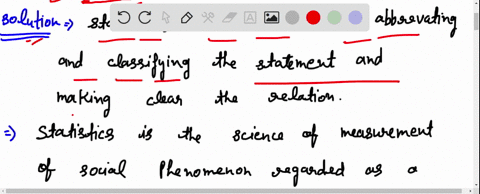 Solution => abbrevating
and classifying the statement and
making clear the relation.
=> Statistics is the science of measurement
of social Phenomenon regarded as a